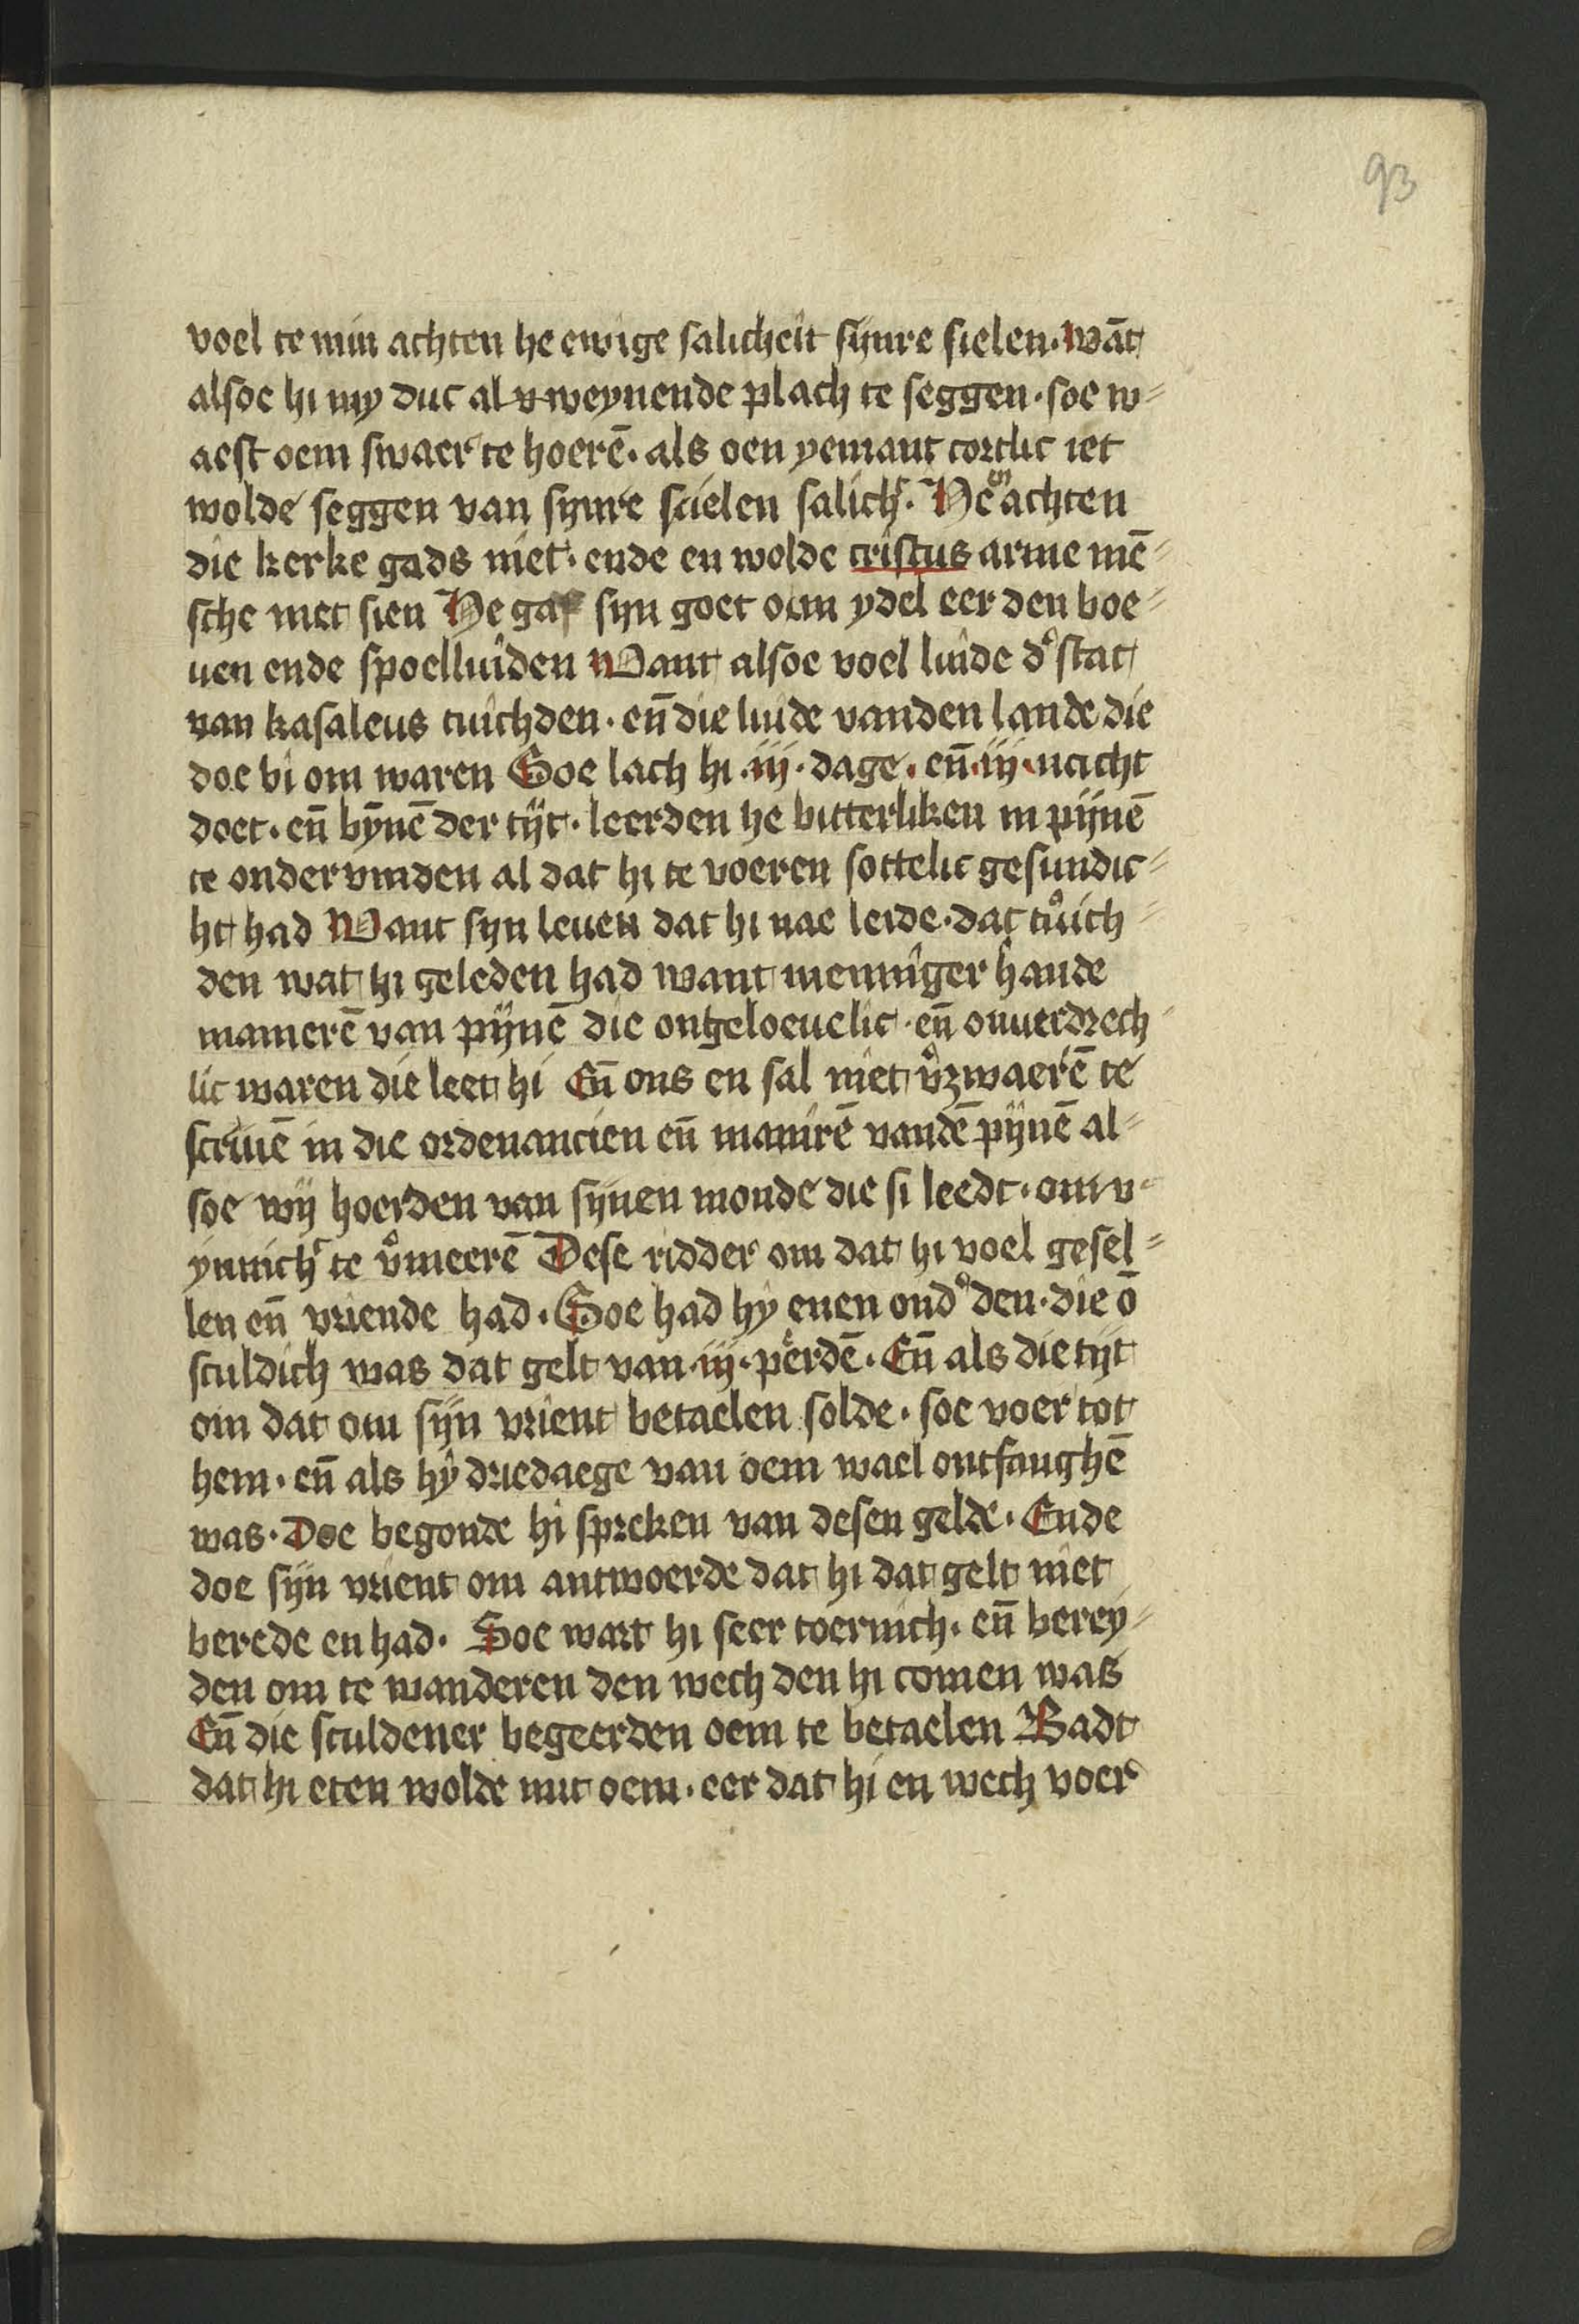 93
voel te min achten he ewige salicheit synre sielen. wāt
alsoe hi my duc al weynende plach te seggen. soe w=
aest oem swaer te hoerē. als oen yemant cortlic iet
wolde seggen van synre scielen salich. He en achten
die kerke gads niet. ende en wolde cristus arme mē=
sche niet sien He gaf syn goet om ydel eer den boe=
uen ende spoelluiden Want alsoe voel luide d' stat
van kasaleus tuichden. en̄ die luide vanden lande die
doe bi om waren Soe lach hi .iij. dage. en̄ .iij. nacht
doet. en̄ bynnē der tijt. leerden he bitterliken in pijnē
te ondervinden al dat hi te voeren sottelic gesundic=
ht had Want syn leuen dat hi nae leide. dat tuich=
den wat hi geleden had want menniger hande
manierē van pijnē die ongeloeuelic. en̄ onuerdrech=
lic waren die leet hi En̄ ons en sal niet v'zwaerē te
scriuē in die ordenancien en̄ manirē vandē pijnē al=
soe wij hoerden van sijnen monde die si leedt. om v=
ynnich' te v'meerē Dese ridder om dat hi voel gesel=
len en̄ vriende had. Soe had hy enen ond' den. die ō
sculdich was dat gelt van .iij. perdē. En̄ als die tijt
om dat om sijn vrient betaelen solde. soe voer tot
hem. en̄ als hy driedaege van oem wael ontfanghē
was. Doe begonde hi spreken van desen gelde. Ende
doe sijn vrient om antwoerde dat hi dat gelt niet
berede en had. Soe wart hi seer toernich. en̄ berey=
den om te wanderen den wech den hi comen was
En̄ die sculdener begeerden oem te betaelen Badt
dat hi eten wolde mit oem. eer dat hi en wech voer